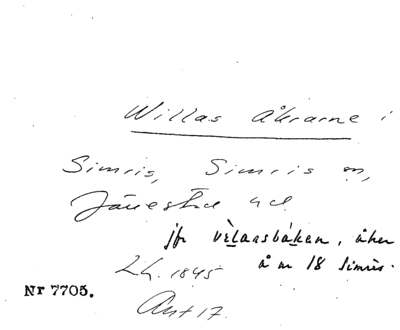 Willas Åkrarne i
Simris, Simris sn,
Järrestad hd
jfr vèlaasbákan, åker
å nr 18 Simris.
L.h. 1845
Nr 7705.
Ant 17.